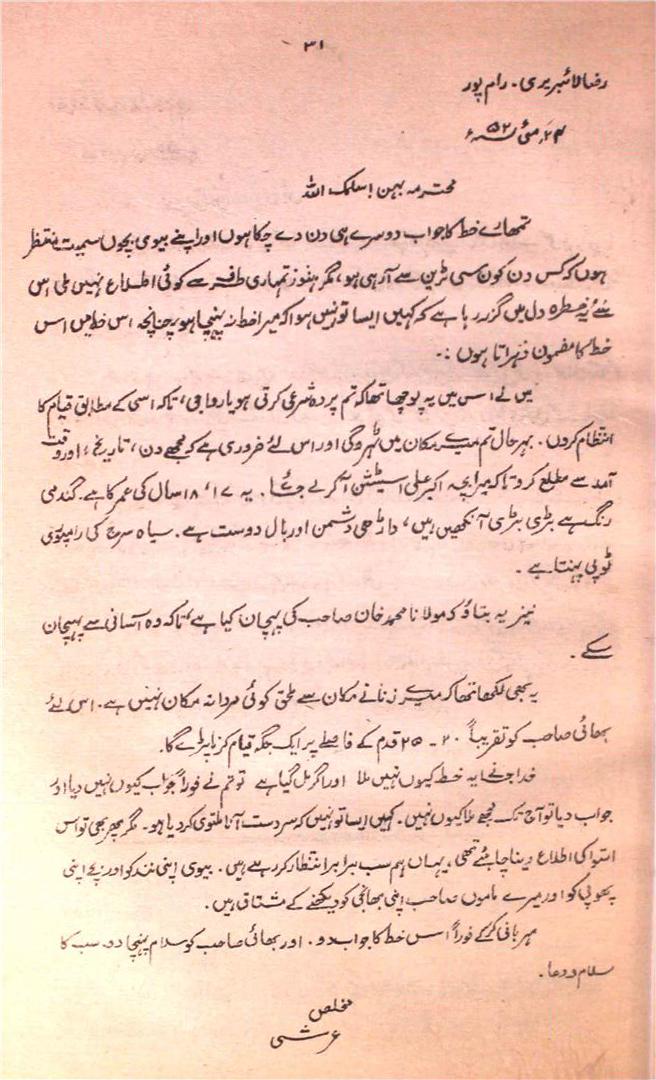 ۳۱
رضا لائبریری۔ رام پور
۲۴؍ مئی ۵۲ء
محترمہ بہن! سلمک اللہ
تمھارے خط کا جواب دوسرے ہی دن دے چکا ہوں اور اپنے بیوی بچوں سمیت منتظر
ہوں کہ کس دن کون سی ٹرین سے آ رہی ہو، مگر ہنوز تمہاری طرف سے کوئی اطلاع نہیں ملی اس
لئے یہ خطرہ دل میں گزر رہا ہے کہ کہیں ایسا تو نہیں ہوا کہ میرا خط نہ پہنچا ہو، چنانچہ اس خط میں اس
خط کا مضمون دہراتا ہوں :۔
میں نے اس میں یہ پوچھا تھا کہ تم پردہ شرعی کرتی ہو یا رواجی، تاکہ اسی کے مطابق قیام کا
انتظام کروں۔ بہرحال تم میرے مکان میں ٹھہروگی اور اس لئے ضروری ہے کہ مجھے دن، تاریخ، اور وقت
آمد سے مطلع کرو تاکہ میرا بچہ اکبر علی اسٹیشن آ کر لے جائے۔ یہ ۱۷، ۱۸ سال کی عمر کا ہے۔ گندمی
رنگ ہے بڑی بڑی آنکھیں ہیں، داڑھی دشمن اور بال دوست ہے۔ سیاہ سرج کی رامپوری
ٹوپی پہنتا ہے۔
نیز یہ بتاؤ کہ مولانا محمد خان صاحب کی پہچان کیا ہے، تاکہ وہ آسانی سے پہچان
سکے۔
یہ بھی لکھا تھا کہ میرے زنانے مکان سے ملحق کوئی مردانہ مکان نہیں ہے۔ اس لئے
بھائی صاحب کو تقریباً ۲۰۔ ۲۵ قدم کے فاصلے پر ایک جگہ قیام کرنا پڑے گا۔
خدا جانے یہ خط کیوں نہیں ملا اور اگر مل گیا ہے تو تم نے فوراً جواب کیوں نہیں دیا اور
جواب دیا تو آج تک مجھے ملا کیوں نہیں۔ کہیں ایسا تو نہیں کہ سردست آنا ملتوی کر دیا ہو۔ مگر پھر بھی تو اس
التوا کی اطلاع دینا چاہئے تھی، یہاں ہم سب برابر انتظار کر رہے ہیں۔ بیوی اپنی نند کو اور بچے اپنی
پھوپی کو اور میرے ماموں صاحب اپنی بھانجی کو دیکھنے کے مشتاق ہیں۔
مہربانی کر کے فوراً اس خط کا جواب دو۔ اور بھائی صاحب کو سلام پہنچا دو۔ سب کا
سلام و دعا۔
مخلص
عرشی